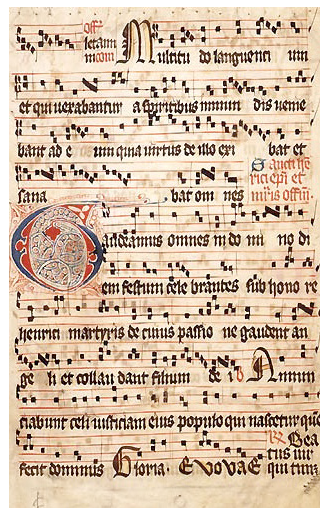 Multitu do languenti um
et qui uexabantur a spiritibus inmun dis uenie
bant ad e um quia uirtus de illo exi bat et
sana bat om nes
Gaudeamus omnes in do mi no di
em festum cele brantes sub hono re
henrici martyris de cuius passio ne gaudent an
ge li et collau dant filium de i Annun
ciabunt celi iusticiam eius populo qui nascetur quē
fecit dominus Gloria. EVOVAE Bea
tus uir
qui tim